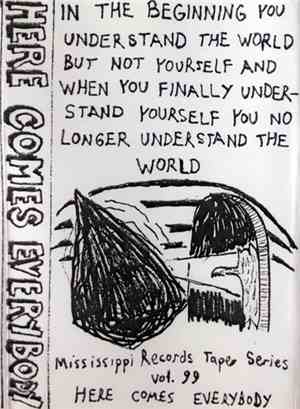 HERE COMES EVERYBODY
IN THE BEGINNING YOU
UNDERSTAND THE WORLD
BUT NOT YOURSELF AND
WHEN YOU FINALLY UNDER-
STAND YOURSELF YOU NO
LONGER UNDERSTAND THE
WORLD
Mississippi Records Tape Series
vol. 99
HERE COMES EVERYBODY